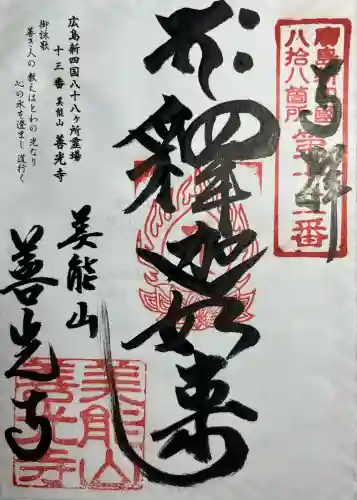 廣島新四國
八拾八箇所第十三番
奉拝
釋迦如来
美能山
善光寺
美能山
善光寺
広島新四国八十八ヶ所霊場
十三番 美能山 善光寺
御詠歌
善き人の 教えはとわの 光なり
心の水を 澄まし 道行く